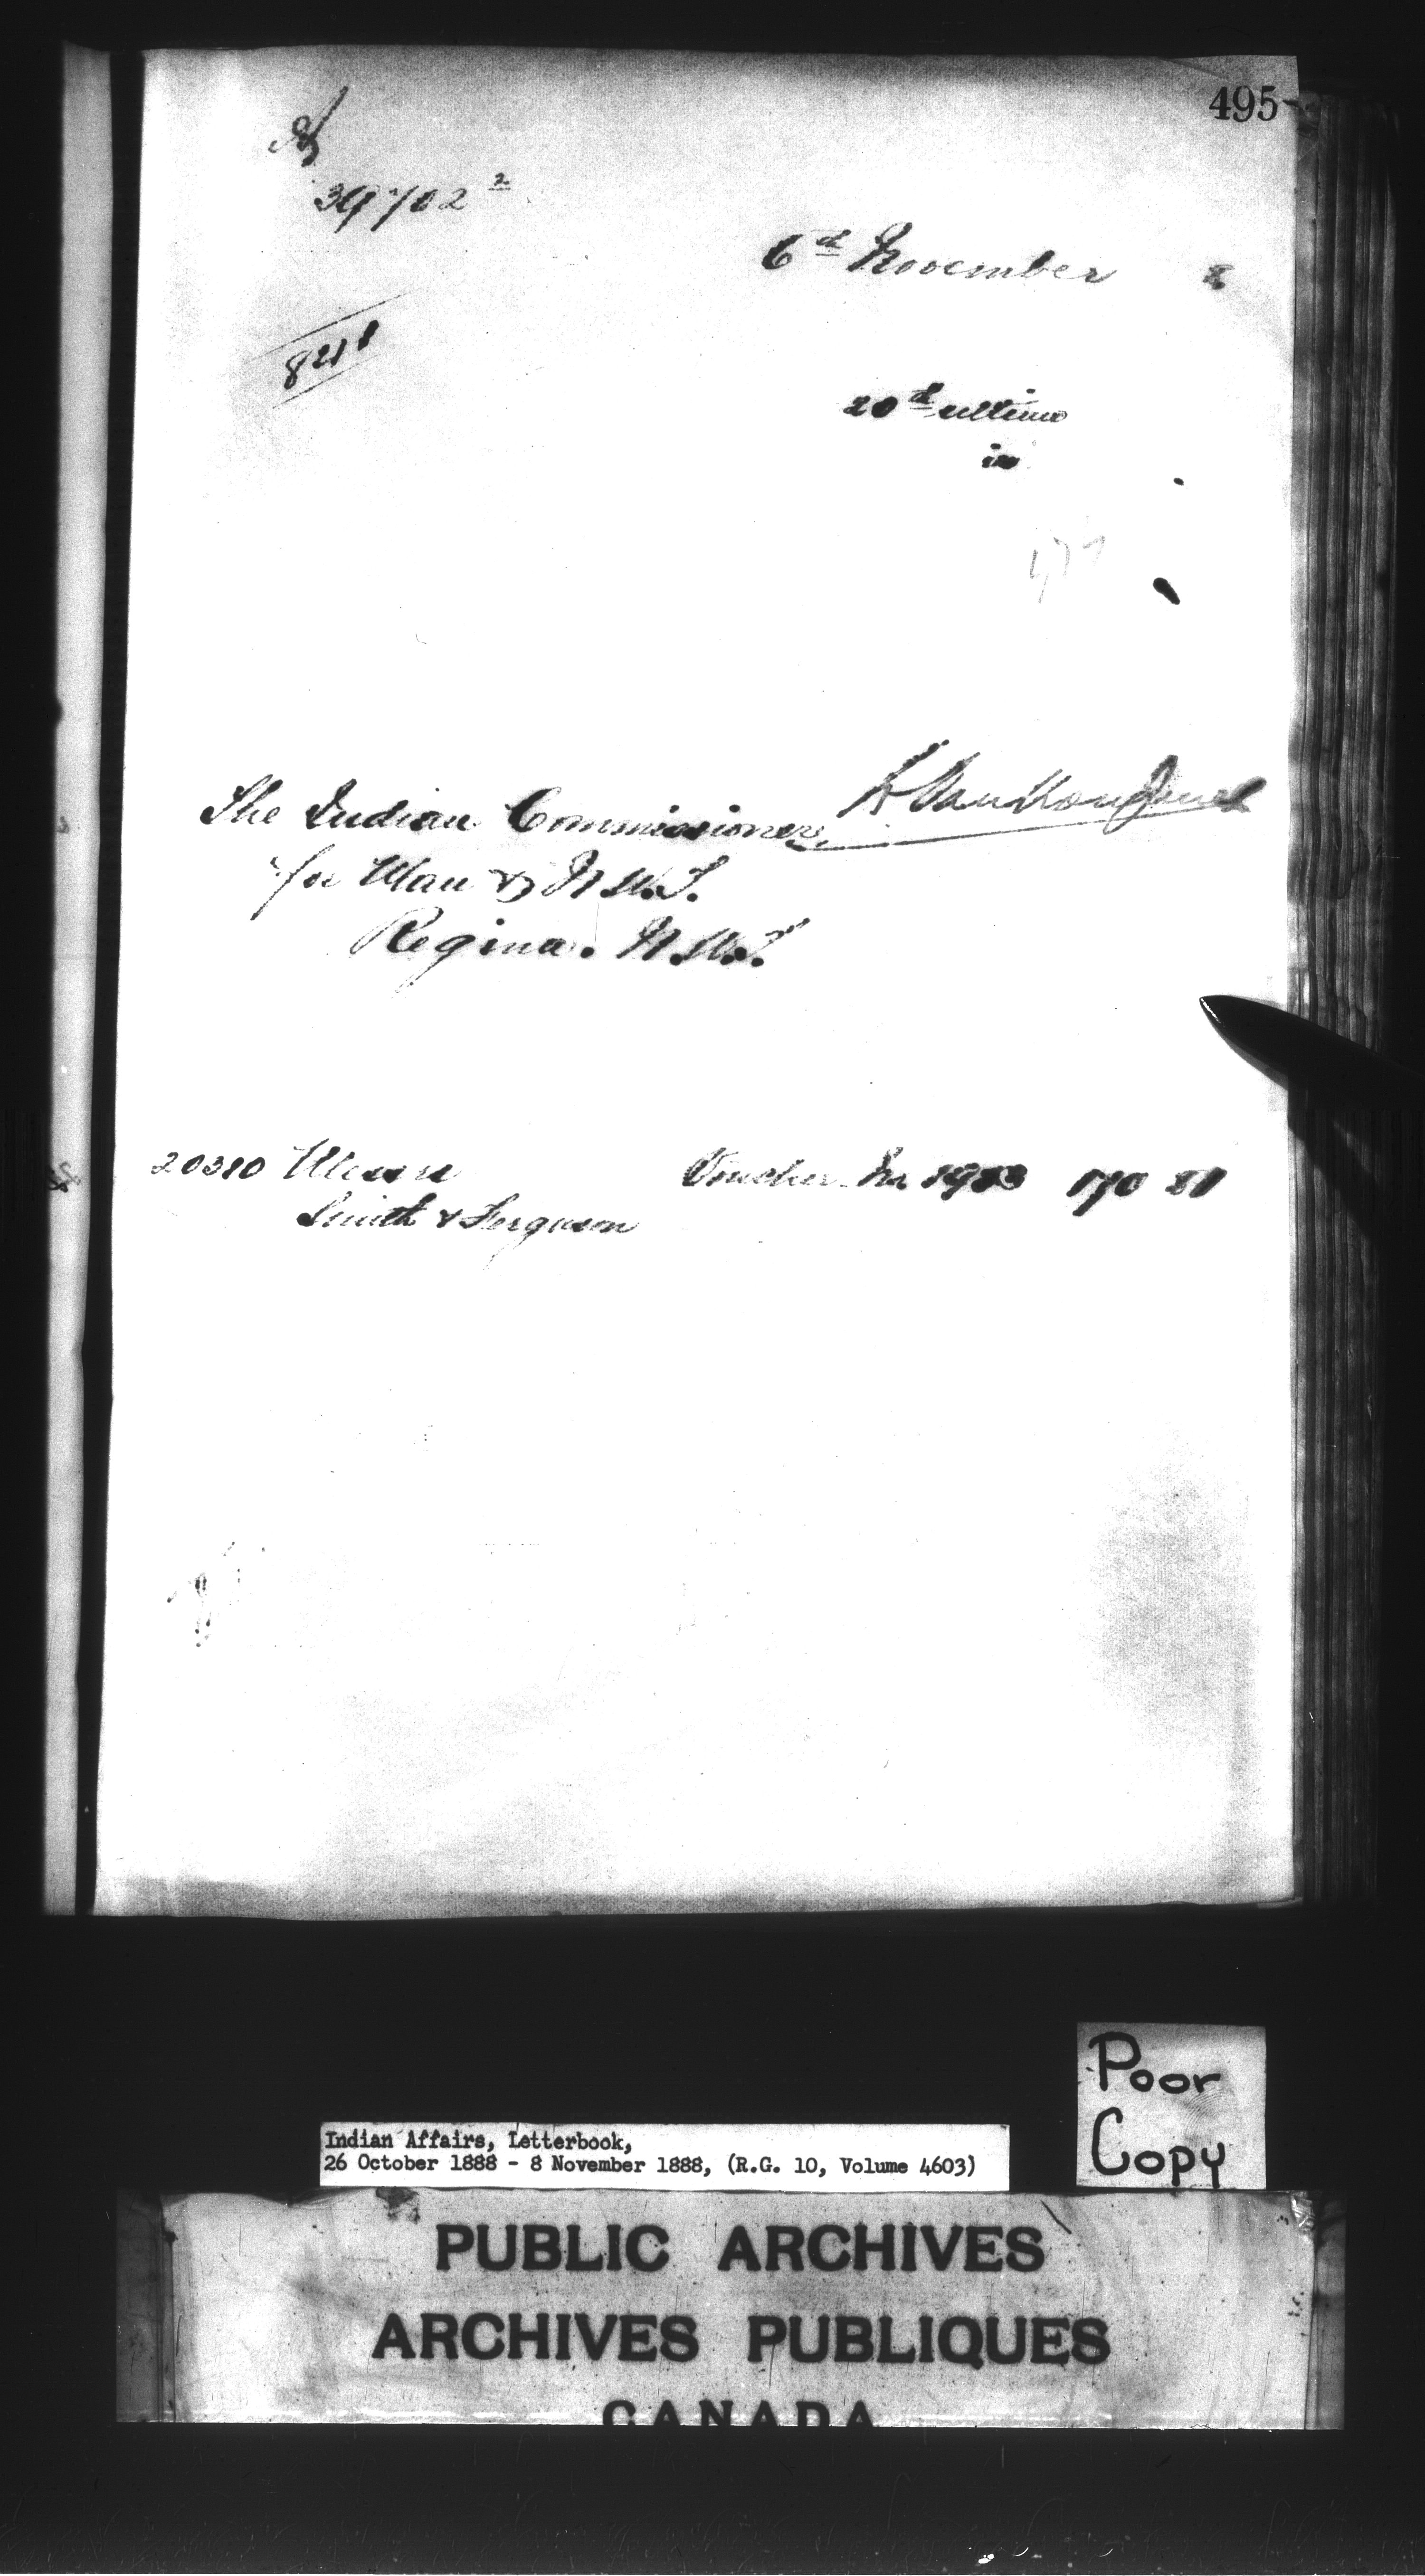 495
39702 2
6th November 8
20th ultimo
in
The Indian Commissioner
for Man & N.W.T.
Regina. N.W.T.
20310 Messrs
Smith & Ferguson
Voucher No 1983 170 81
Poor
Copy
Indian Affairs, Letterbook,
26 October 1888 - 8 November 1888, (R.G. 10, Volume 4603)
PUBLIC ARCHIVES
ARCHIVES PUBLIQUES
CANADA